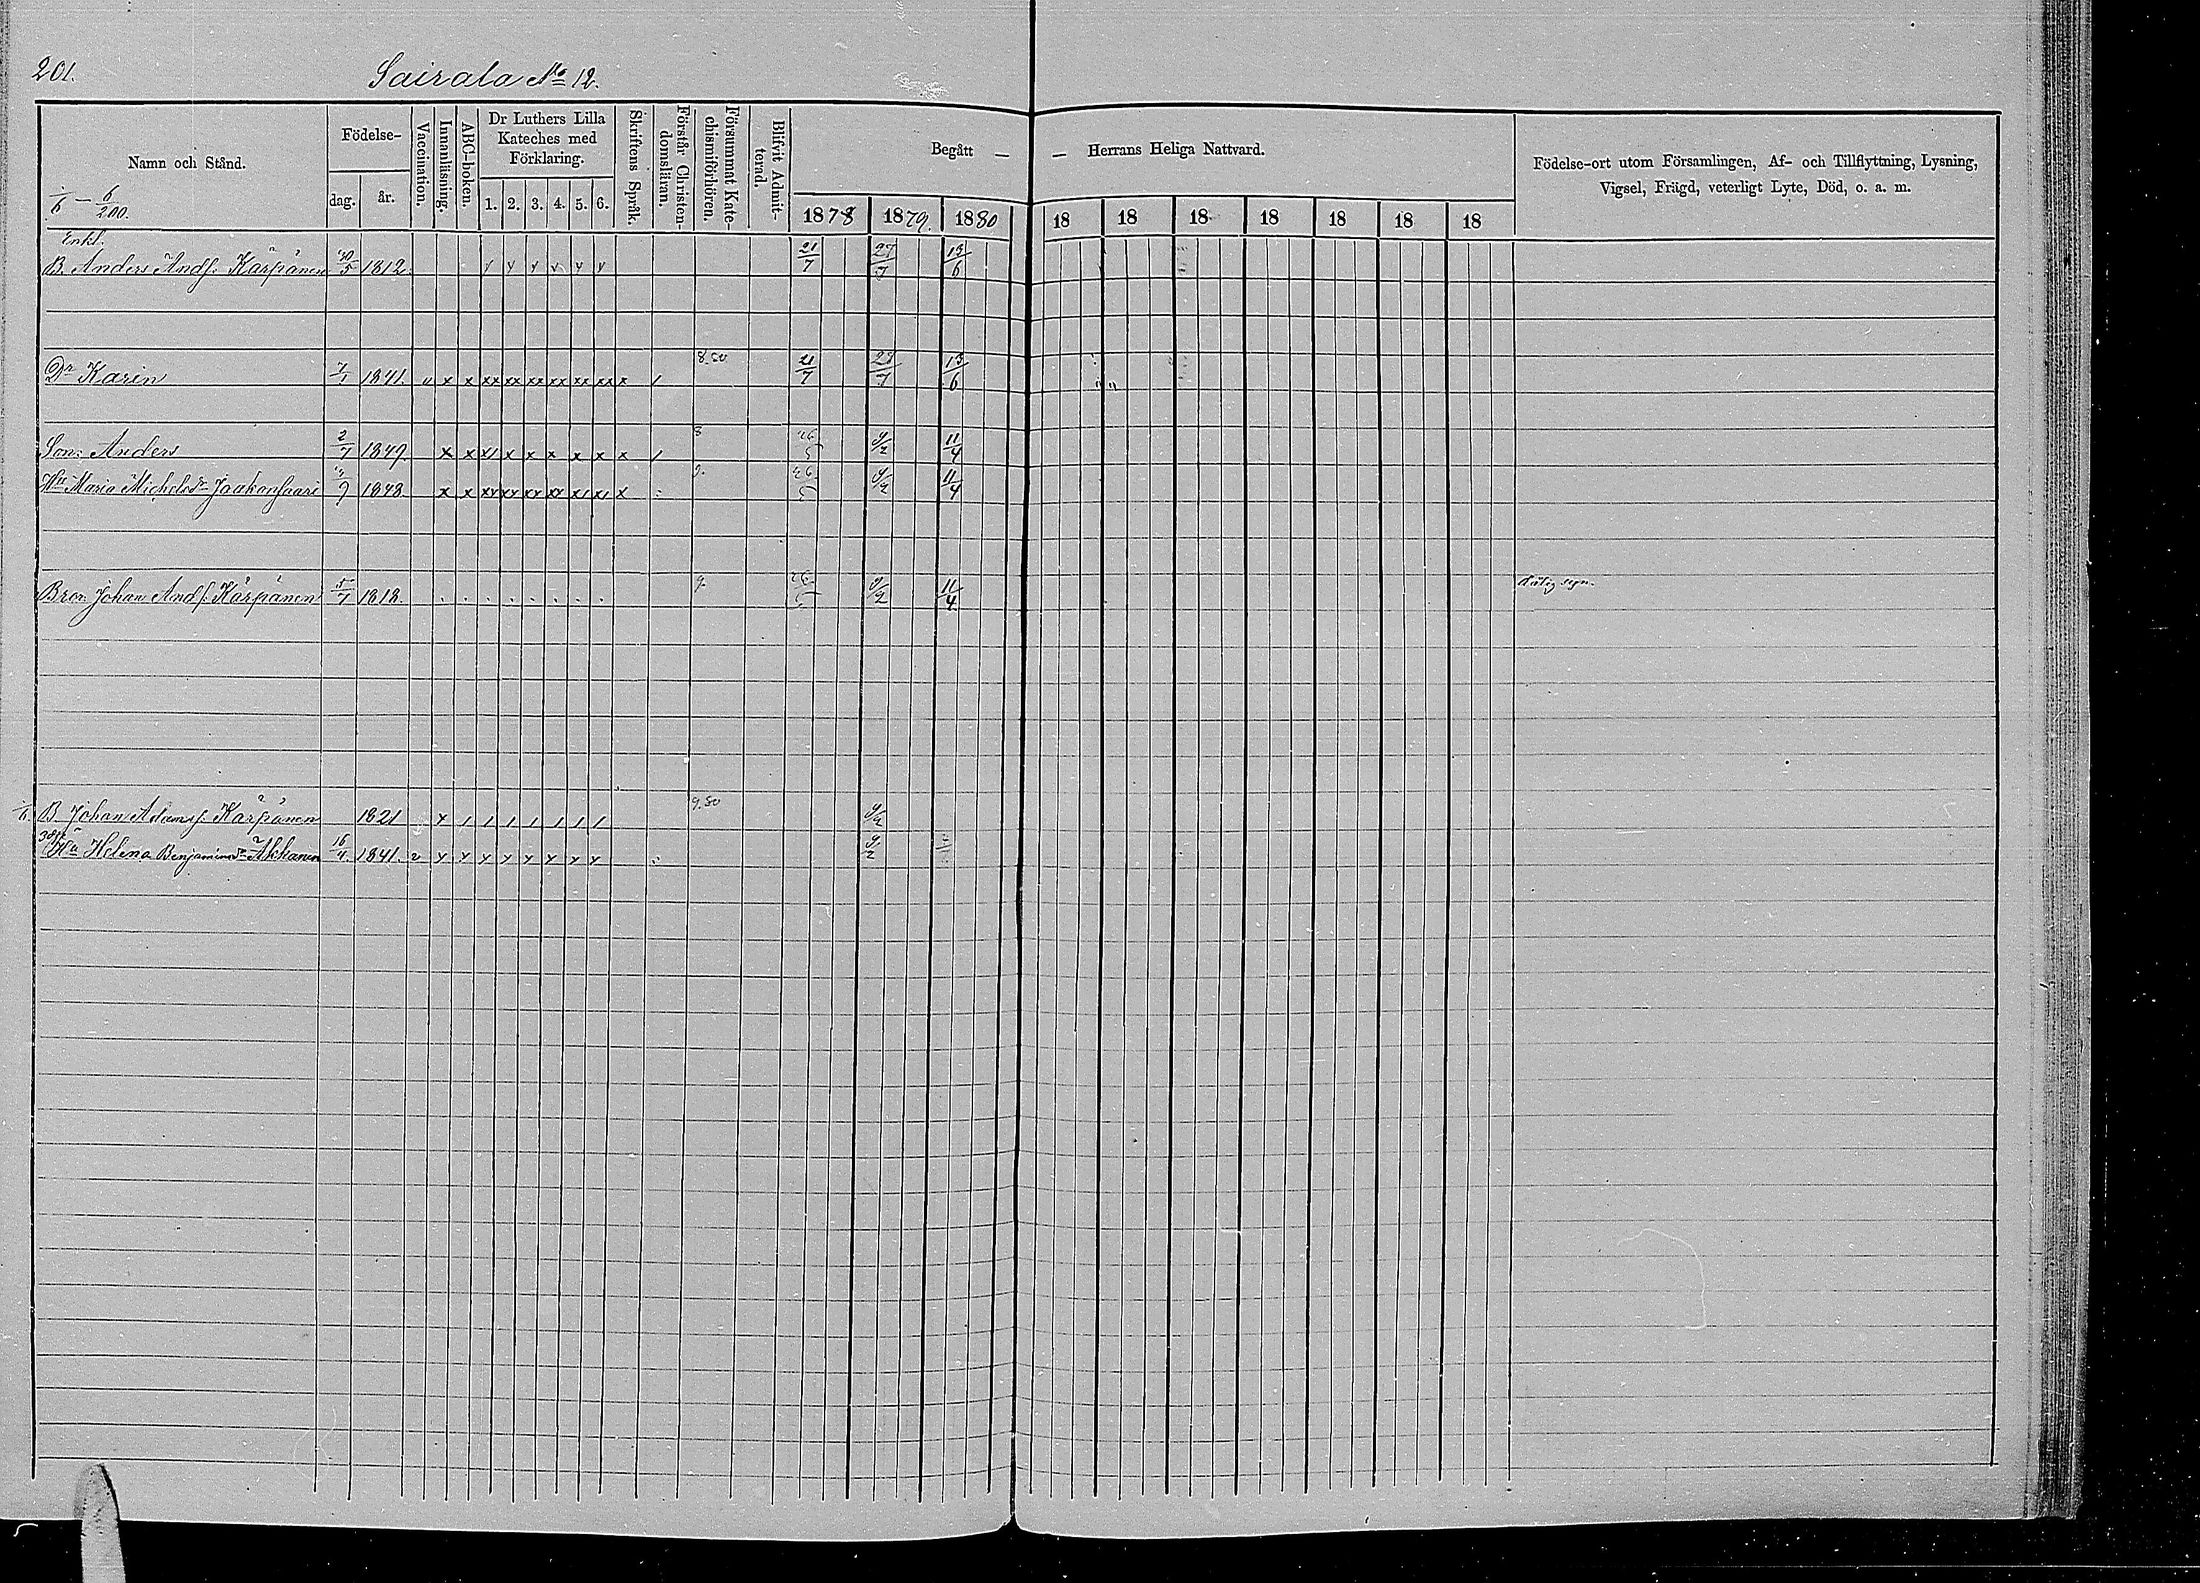 201.
Sairala No 12.
Namn och Stånd.
Födelse-
dag. år.
Vaccination.
Innanläsning.
ABC-boken.
Dr Luthers Lilla Kateches med Förklaring.
1. 2. 3. 4. 5. 6.
Skriftens Språk.
Förstår Christen-domsläran.
Försummat Kate-chismiförhören.
Blifvit Admit-terad.
Begått — — Herrans Heliga Nattvard.
1878 1879. 1880 18 18 18 18 18 18 18
Födelse-ort utom Församlingen, Af- och Tillflyttning, Lysning,
Vigsel, Frigd, veterligt Lyte, Död, o. a. m.
1/6 — 6/200.
Enkl.
B. Anders Andss. Kärpänen 30/5 1812. 21/7 27/7 13/6
Dr Karin 7/1 1841. 8.80 21/7 27/7 13/6
Son: Anders 2/7 1849. 3 26/5 9/2 11/4
Hu Maria Michelsdr Jaakonsaari 9 1848. 9. 26/5 9/2 11/4
Bror Johan Andss. Kärpänen 5/7 1818. 9. 26/5 9/2 11/4 Dålig syn.
B. Johan Adamss. Kärpänen 1821 9.80 9/2
Hu Helena Benjaminsdr Akkanen 16/4 1841. 9/2